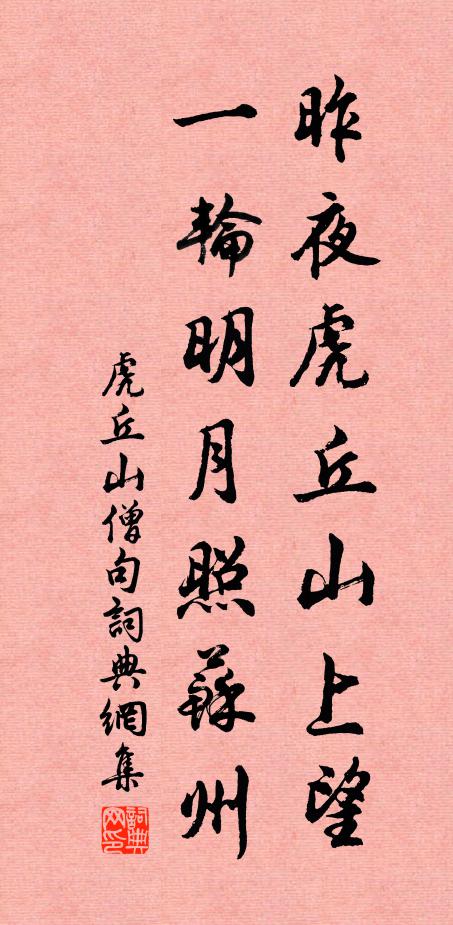 昨夜虎丘山上望
一輪明月照蘇州
虎丘山僧句詞典網集
詞典网印